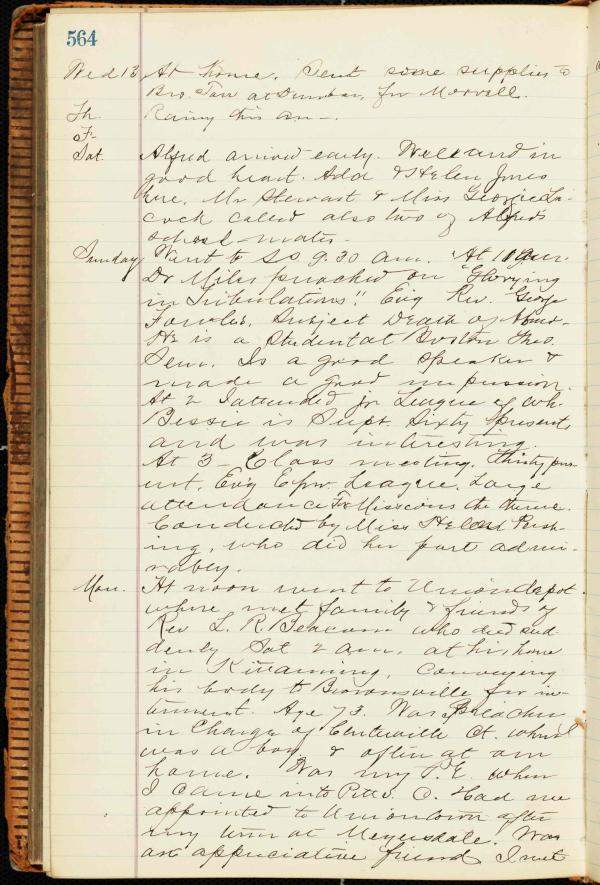 564
Wed 13 At home. Sent some supplies to
Bro. Tarr at Dunbar, for Morrell.
Th. Rainy this am -.
F.
Sat. Alfred arrived early. Well and in
good heart. Ada & Helen Jones
here. Mr Stewart & Miss Georgie La-
cock called also two of Alfred's
school-mates -
Sunday Went to SS 9.30 am. At 11 am.
Dr Miles preached on "Glorying
in Tribulations". Evg Rev. George
Fowles, Subject Death of
He is a student at Boston Theo.
Sem. Is a good speaker &
made a good impression.
At 2 I attended jr League of wh.
Bessie is Supt. Sixty present
and was interesting.
At 3 - Class meeting. Thirty pres-
ent. Evg Epw. League. Large
attendance Fr Missions the theme.
Conducted by Miss Helen Persh-
ing, who did her part admi-
rably.
Mon. At noon went to Union depot.
where met family & friends of
Rev L. R. Beacom who died sud-
denly Sat 2 am. at his home
in Kittanning, conveying
his body to Brownsville for in-
terment. Age 73. Was Preacher
in Charge of Centreville Ct. when I
was a boy & often at our
home. Was my P.E. when
I came into Pitts. C. Had me
appointed to Uniontown after
my term at Meyersdale. Was
an appreciative friend I met